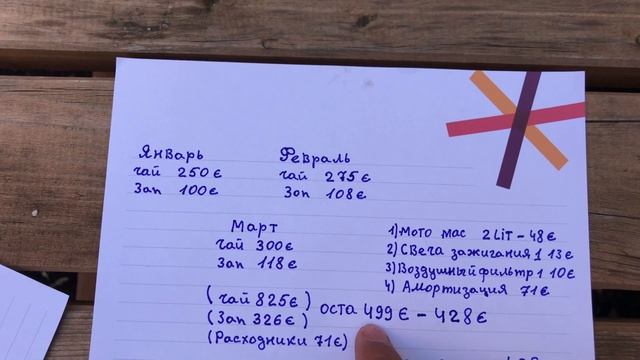 Январь
чай 250€
Зап 100€
Февраль
чай 275€
Зоп 108€
Март
чай 300€
Зап 118€
1) Мото мас 2Lit - 48€
2) Свеча зажигания 1 13€
3) Воздушный фильтр 1 10€
4) Амортизация 71€
(чай 825€)
(Зап 326€)
(Расходники 71€)
оста 499€ - 428€